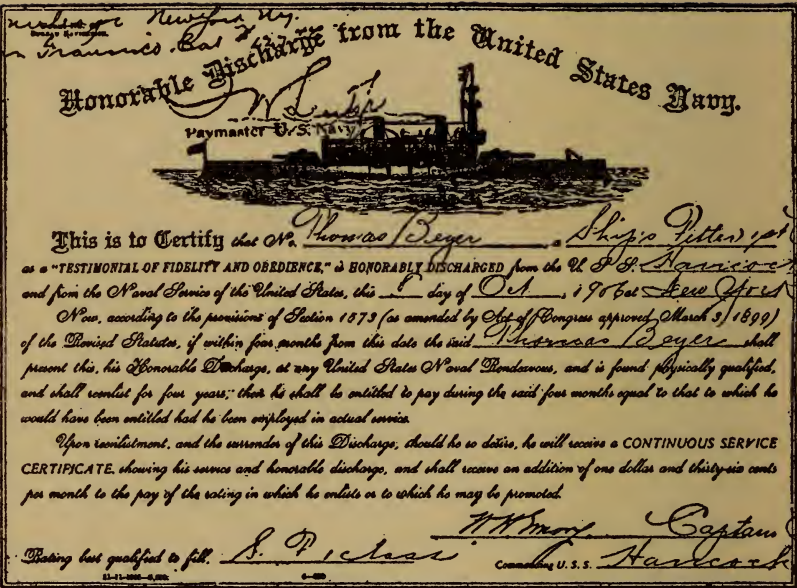 New York Ny.
Francisco Cal
Honorable Discharge from the United States Navy.
Paymaster U.S. Navy
This is to Certify that No. Thomas Beyer a Ship's Fitter 1st
as a "TESTIMONIAL OF FIDELITY AND OBEDIENCE," is HONORABLY DISCHARGED from the U. S. S. Hancock
and from the Naval Service of the United States, this 8 day of Oct, 1906 at New York
Now, according to the provisions of Section 1573 (as amended by Act of Congress approved March 3, 1899)
of the Revised Statutes, if within four months from this date the said Thomas Beyer shall
present this, his Honorable Discharge, at any United States Naval Rendezvous, and is found physically qualified,
and shall reenlist for four years, then he shall be entitled to pay during the said four months equal to that to which he
would have been entitled had he been employed in actual service.
Upon reenlistment, and the surrender of this Discharge, should he so desire, he will receive a CONTINUOUS SERVICE
CERTIFICATE, showing his service and honorable discharge, and shall receive an addition of one dollar and thirty-six cents
per month to the pay of the rating in which he enlists or to which he may be promoted.
Captain
Rating best qualified to fill, S. F. 1 class
Commanding U. S. S. Hancock